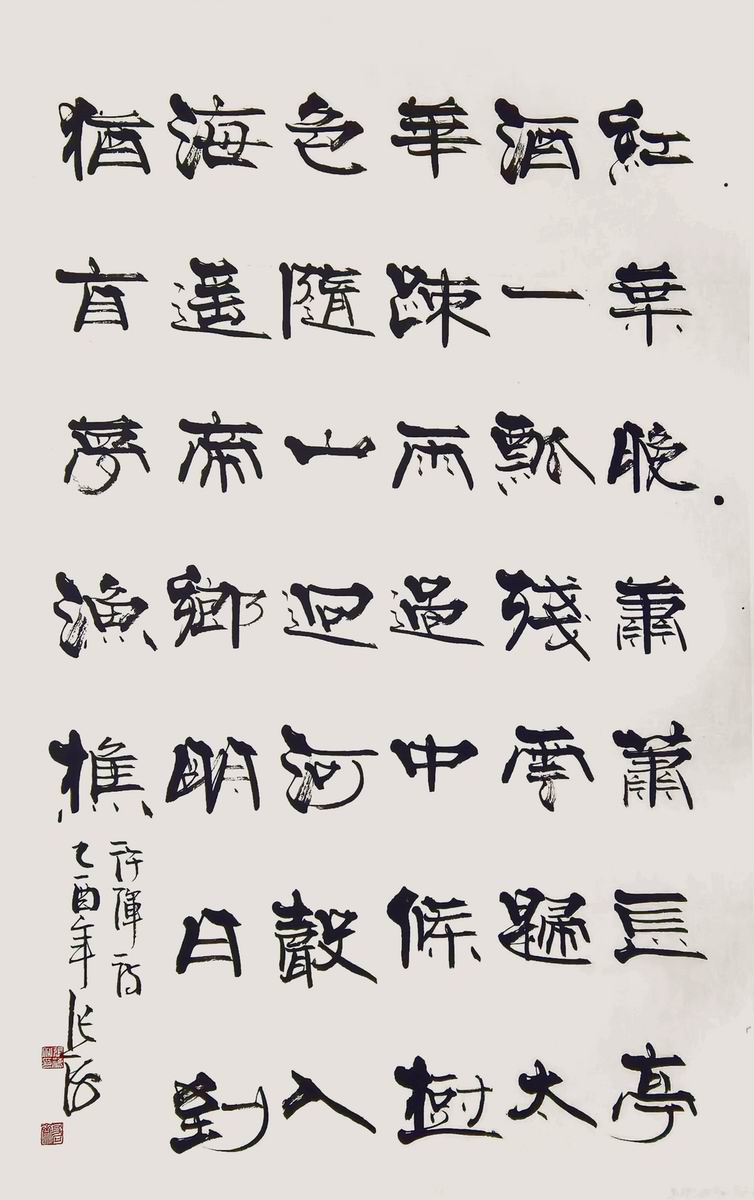 紅葉晚蕭蕭長亭
酒一瓢殘雲歸太
華疎雨過中條樹
色隨山迥河聲入
海遥帝鄉明日到
猶自夢漁樵
許渾詩
乙酉年张海